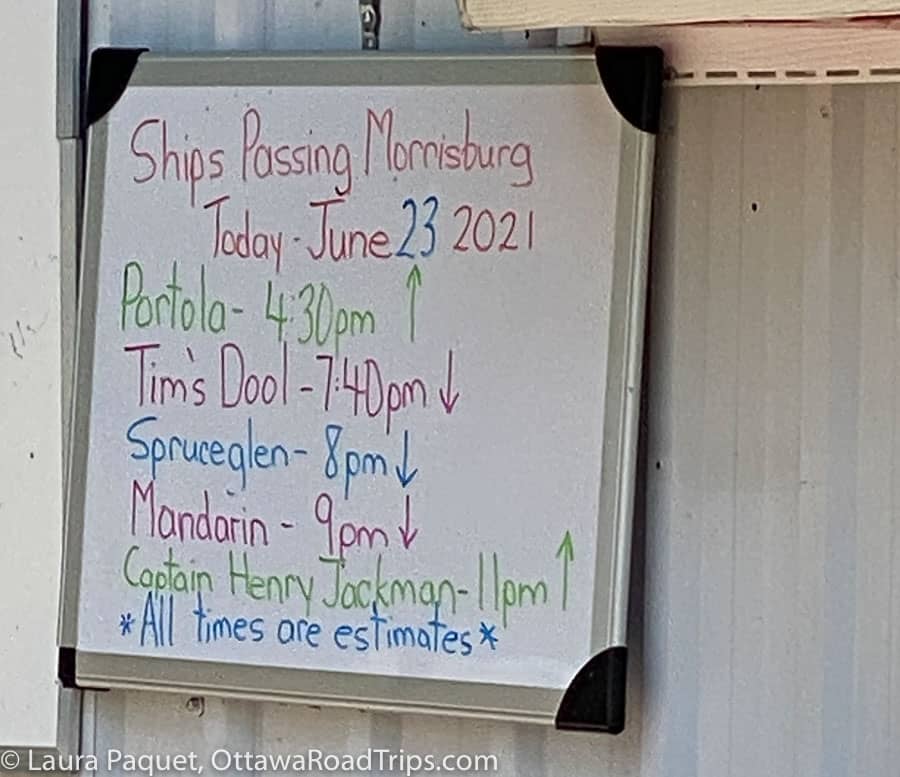 Ships Passing Morrisburg
Today - June 23 2021
Portola - 4:30pm ↑
Tim's Dool - 7:40pm ↓
Spruceglen - 8pm ↓
Mandarin - 9pm ↓
Captain Henry Jackman - 11pm ↑
*All times are estimates*
© Laura Paquet, OttawaRoadTrips.com